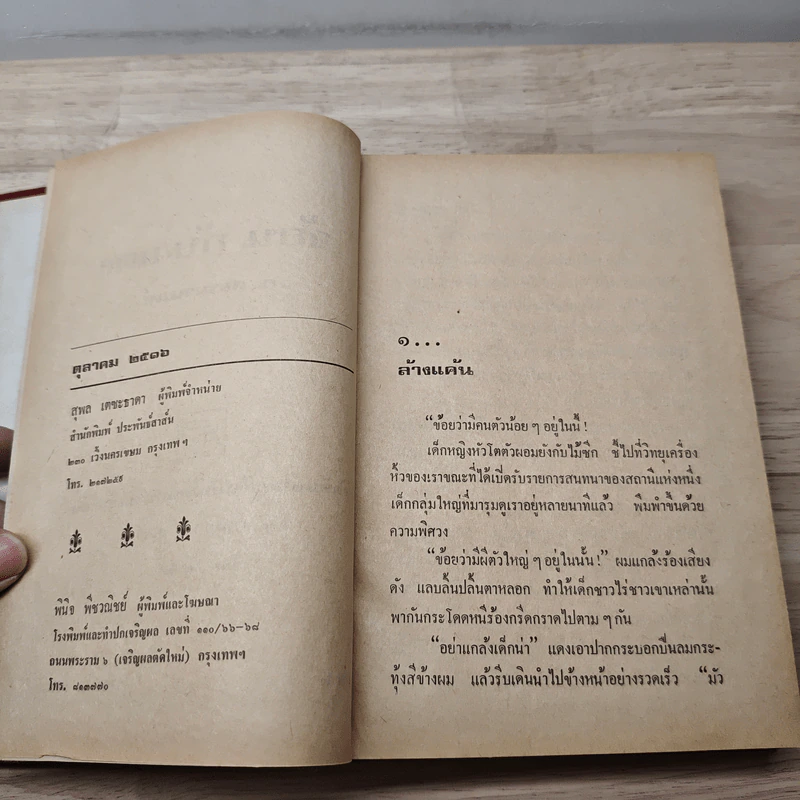 ตุลาคม ๒๕๑๖
สุพล เตชะธาดา ผู้พิมพ์จำหน่าย
สำนักพิมพ์ ประพันธ์สาส์น
๒๓๐ เวิ้งนครเขษม กรุงเทพฯ
โทร. ๒๑๗๒๕๕
พินิจ พืชวณิชย์ ผู้พิมพ์และโฆษณา
โรงพิมพ์และทำปกเจริญผล เลขที่ ๑๑๐/๖๖-๖๘
ถนนพระราม ๖ (เจริญผลตัดใหม่) กรุงเทพฯ
โทร. ๘๑๓๗๗๐
๑...
ล้างแค้น
“ข้อยว่ามีคนตัวน้อย ๆ อยู่ในนี้!
เด็กหญิงหัวโตตัวผอมยังกับไม้ซีก ชี้ไปที่วิทยุเครื่อง
หิ้วของเราขณะที่ได้เปิดรับรายการสนทนาของสถานีแห่งหนึ่ง
เด็กกลุ่มใหญ่ที่มารุมดูเราอยู่หลายนาทีแล้ว พึมพำขึ้นด้วย
ความพิศวง
“ข้อยว่ามีผีตัวใหญ่ ๆ อยู่ในนั้น!” ผมแกล้งร้องเสียง
ดัง แลบลิ้นปลิ้นตาหลอก ทำให้เด็กชาวไร่ชาวเขาเหล่านั้น
พากันกระโดดหนีร้องกรี๊ดกราดไปตาม ๆ กัน
“อย่าแกล้งเด็กน่า” แดงเอาปากกระบอกปืนลมกระ-
ทุ้งสีข้างผม แล้วรีบเดินนำไปข้างหน้าอย่างรวดเร็ว “มัว